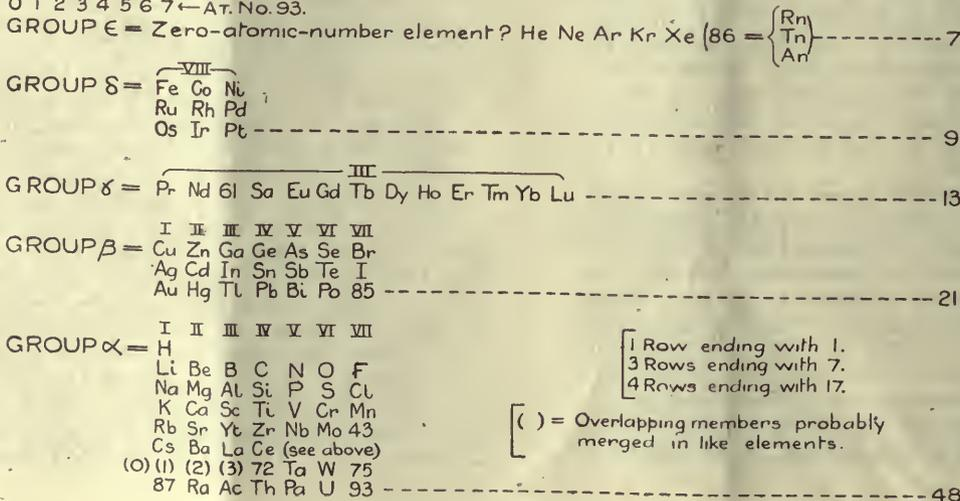 0 1 2 3 4 5 6 7 ← AT. NO. 93.
GROUP ϵ = Zero-atomic-number element? He Ne Ar Kr Xe (86 = {Rn Tn An} ---------- 7
VIII
GROUP δ = Fe Co Ni
Ru Rh Pd
Os Ir Pt ---------- 9
III
GROUP ɣ = Pr Nd 61 Sa Eu Gd Tb Dy Ho Er Tm Yb Lu ---------- 13
I II III IV V VI VII
GROUP β = Cu Zn Ga Ge As Se Br
Ag Cd In Sn Sb Te I
Au Hg Tl Pb Bi Po 85 ---------- 21
I II III IV V VI VII
GROUP α = H
Li Be B C N O F
Na Mg Al Si P S Cl
K Ca Sc Ti V Cr Mn
Rb Sr Yt Zr Nb Mo 43
Cs Ba La Ce (see above)
(0) (1) (2) (3) 72 Ta W 75
87 Ra Ac Th Pa U 93 ---------- 48
[1 Row ending with 1.
3 Rows ending with 7.
4 Rows ending with 17.
[( ) = Overlapping members probably
merged in like elements.